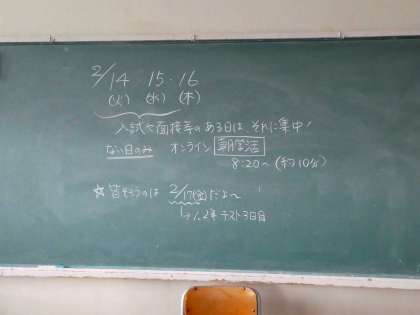 2/14 15・16
(火) (水) (木)
入試や面接等のある日は、それに集中!
ない日のみ オンライン 朝学活
8:20〜(約10分)
☆皆そろうのは 2/17(金)だよ〜
↳1,2年 テスト3日目